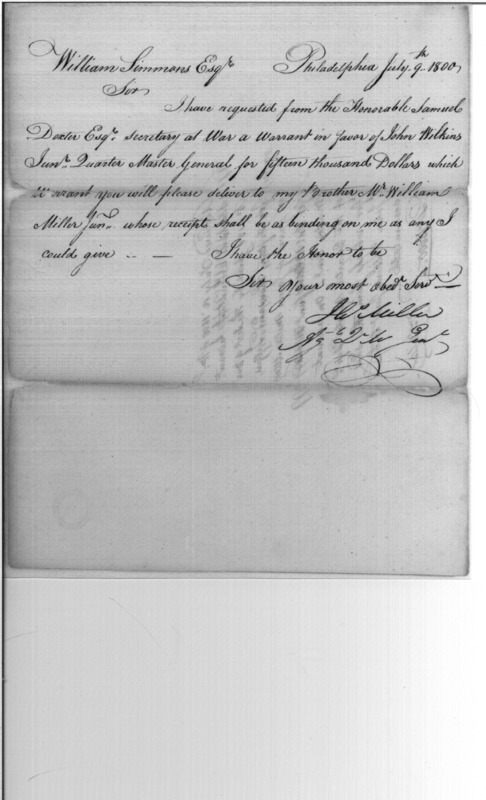 William Simmons Esqr. Philadelphia July 9th 1800
Sir
I have requested from the Honorable Samuel
Dexter Esqr. Secretary at War a Warrant in favor of John Wilkins
Junr. Quarter Master General for fifteen thousand Dollars which
Warrant you will please deliver to my Brother Mr. William
Miller Junr. whose receipt shall be as binding on me as any I
could give — — I have the Honor to be
Sir your most obedt. Servt.
Miller
Qr M Genl